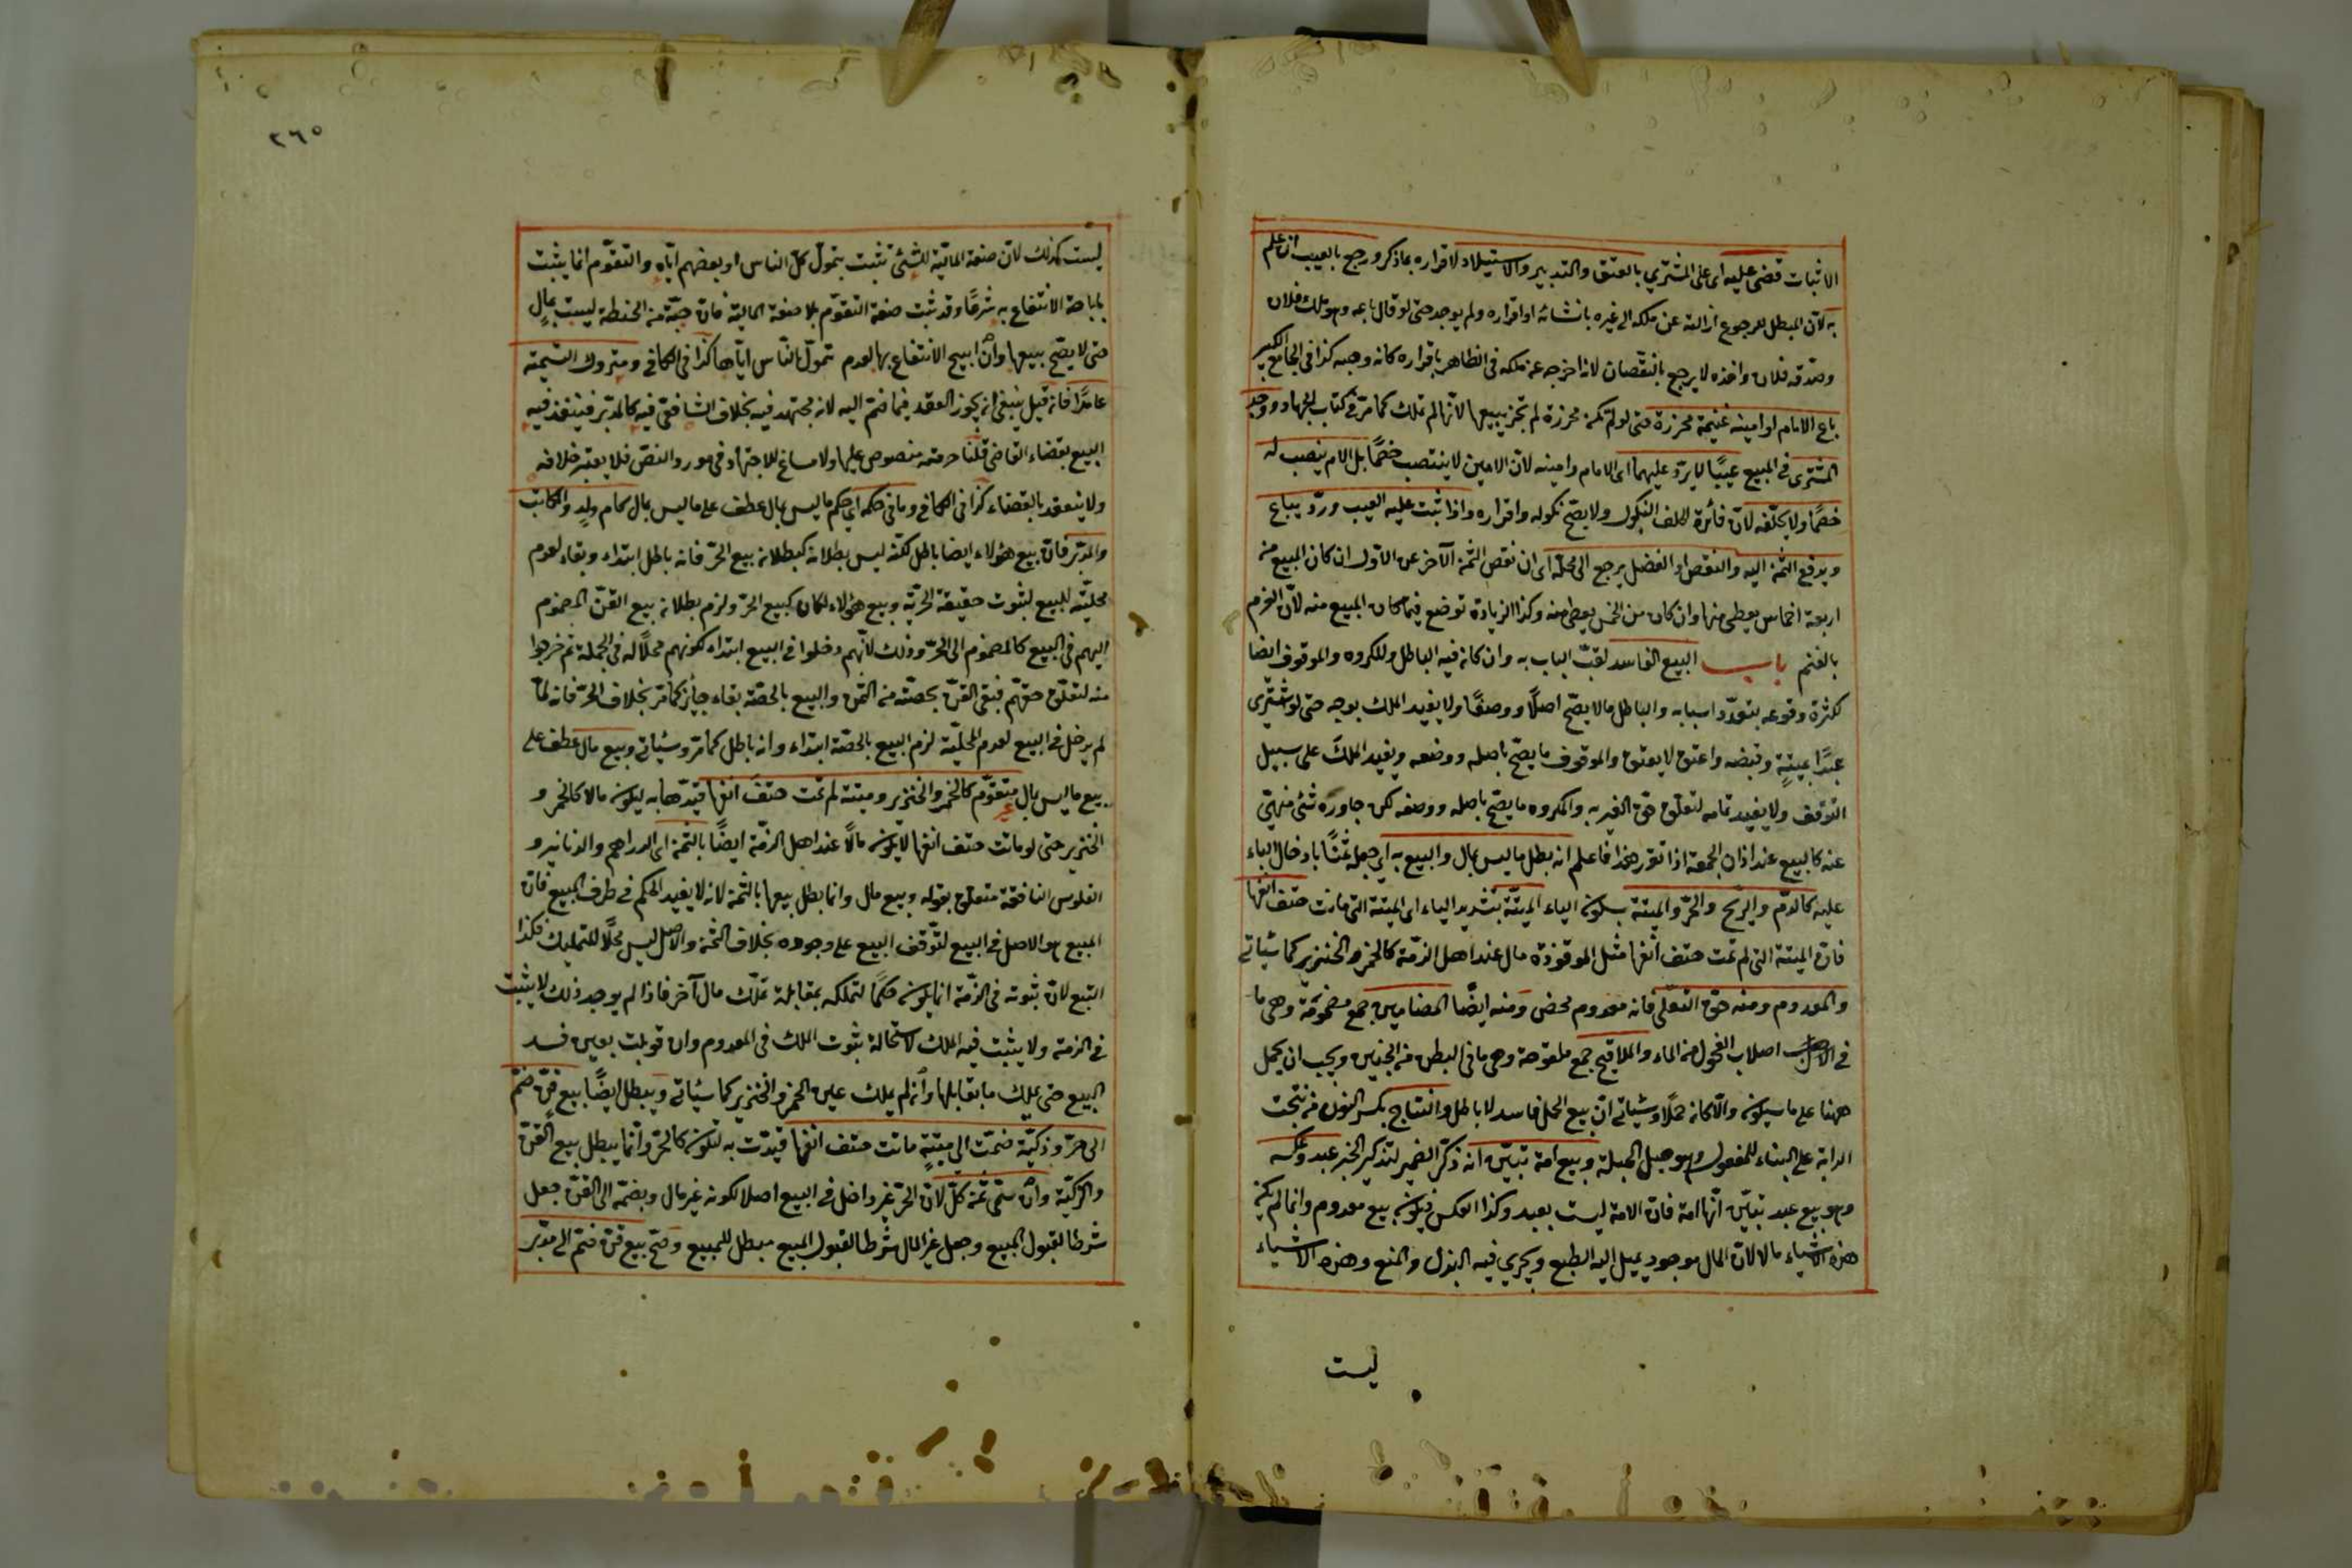 الاثبات قضى عليه اى على المشتري بالعتق والتدبير والاستيلاد لاقراره بما ذكر ورجع بالعيب ان علم
به لان المبطل للرجوع ازالته عن ملكه الى غيره بانشائه او اقراره ولم يوجد حتى لو قال باعه وهو ملك فلان
وصدقه فلان واخذه لا يرجع بالنقصان لانه اخرجه عن ملكه فى الظاهر باقراره كانه وهبه كذا فى الجامع الكبير
باع الامام او امينه غنيمة محرزة حتى لو لم تكن محرزة لم تجز بيعها لانها لم تملك كما مر فى كتاب الجهاد ووجد
المشترى فى المبيع عيبًا لا يردّ عليهما اى الامام وامينه لان الامين لا ينتصب خصمًا بل الامام ينصب له
خصمًا ولا يحلّفه لان فائدة الحلف النكول ولا يصح نكوله واقراره واذا ثبت عليه العيب وردّ يباع
ويدفع الثمن اليه والنقص او الفضل يرجع الى محلّه اى ان نقص الثمن الآخر عن الاول ان كان المبيع من
اربعة اخماس يعطى منها وان كان من الخمس يعطى منه وكذا الزيادة توضع فيما كان المبيع منه لان الغرم
بالغنم باب البيع الفاسد لقّب الباب به وان كان فيه الباطل والمكروه والموقوف ايضا
لكثرة وقوعه بتعدّد اسبابه والباطل ما لا يصحّ اصلًا ووصفًا ولا يفيد الملك بوجه حتى لو اشترى
عبدًا بميتة وقبضه واعتق لا يعتق والموقوف ما يصحّ باصله ووصفه ويفيد الملك على سبيل
التوقف ولا يفيد تمامه لتعلّق حق الغير به والمكروه ما يصحّ باصله ووصفه لكن جاوره شئ منهىّ
عنه كالبيع عند اذان الجمعة اذا تقرر هذا فاعلم انه بطل ما ليس بمال والبيع به اى جعله ثمنًا بادخال الباء
عليه كالدم والريح والحرّ والميتة بسكون الياء الميّتة بتشديد الياء اى الميتة التى ماتت حتف انفها
فان الميتة التى لم تمت حتف انفها مثل الموقوذة مال عند اهل الذمّة كالخمر والخنزير كما سيأتى
والمعدوم ومنه حق التعلّى فانه معدوم محض ومنه ايضًا المضامين جمع مضمونة وهى ما
فى اصلاب الفحول من الماء والملاقيح جمع ملقوحة وهى ما فى البطن من الجنين ويجب ان يحمل
ههنا على ما سيكون والا كان حملًا وسيأتى ان بيع الحمل فاسد لا باطل والنتاج بكسر النون من نتجت
الدابة على البناء للمفعول وهو حبل الحبلة وبيع امة تبيّن انه ذكّر الضمير لتذكير الخبر عبد وعكسه
وهو بيع عبد تبيّن انها امة فان الامة ليست بعبد وكذا العكس فيكون بيع معدوم وانما لم يكن
هذه الاشياء مالا لان المال موجود يميل اليه الطبع ويجري فيه البذل والمنع وهذه الاشياء
ليست
٢٦٥
ليست كذلك لان صفة المالية للشئ تثبت بتموّل كلّ الناس او بعضهم ايّاه والتقوّم انما يثبت
باباحة الانتفاع به شرعًا وقد ثبت صفة التقوّم بلا صفة المالية فان حبّة من الحنطة ليست بمال
حتى لا يصحّ بيعها وان ابيح الانتفاع بها لعدم تموّل الناس ايّاها كذا فى الكافى ومتروك التسمية
عامدًا فانه قيل ينبغى ان يجوز العقد فيما ضمّ اليه لانه مجتهد فيه بخلاف الشافعى فيه كالمدبّر فينفذ فيه
البيع بقضاء القاضى قلنا حرمته منصوص عليها ولا مساغ للاجتهاد فى مورد النصّ فلا يعتبر خلافه
ولا ينعقد بالقضاء كذا فى الكافى وما فى حكمه اى حكم ما ليس بمال عطف على ما ليس بمال كام ولد والمكاتب
والمدبّر فان بيع هؤلاء ايضا باطل لكنّه ليس بطلانه كبطلان بيع الحرّ فانه باطل ابتداء وبقاء لعدم
محليّته للبيع لثبوت حقيقة الحريّة وبيع هؤلاء لو كان كبيع الحرّ ولزم بطلان بيع القنّ المضموم
اليهم فى البيع كالمضموم الى الحرّ وذلك لانّهم دخلوا فى البيع ابتداء لكونهم محلًا له فى الجملة ثم خرجوا
منه لتعلّق حقّهم فبقى القنّ بحصّته من الثمن والبيع بالحصّة بقاء جائز كما مرّ بخلاف الحرّ فانه لمّا
لم يدخل فى البيع لعدم المحلّية لزم البيع بالحصّة ابتداء وانه باطل كما مرّ وسيأتى وبيع مال عطف على
بيع ما ليس بمال غير متقوّم كالخمر والخنزير وميتة لم تمت حتف انفها قيّدها به ليكون مالا كالخمر و
الخنزير حتى لو ماتت حتف انفها لا يكون مالًا عند اهل الذمّة ايضًا بالثمن اى الدراهم والدنانير و
الفلوس النافقة متعلّق بقوله وبيع مال وانما بطل بيعها بالثمن لانه لا يفيد الحكم فى طرف المبيع فان
المبيع هو الاصل فى البيع لتوقّف البيع على وجوده بخلاف الثمن والاصل ليس محلًا للتمليك فكذا
التبع لان ثبوته فى الذمّة انما يكون حكمًا لتملكه بمقابلة تملّك مال آخر فاذا لم يوجد ذلك لا يثبت
فى الذمة ولا يثبت فيه الملك لاستحالة ثبوت الملك فى المعدوم وان قوبلت بعين فسد
البيع حتى يملك ما يقابلها وان لم يملك عين الخمر والخنزير كما سيأتى ويبطل ايضًا بيع قنّ ضمّ
الى حرّ وذكيّة ضمّت الى ميتة ماتت حتف انفها قيّدت به لتكون كالحرّ وانما يبطل بيع القنّ
والذكيّة وان سمّى ثمن كلّ لان الحرّ غير داخل فى البيع اصلا لكونه غير مال وبضمّه الى القنّ جعل
شرطا لقبول المبيع وجعل غير المال شرطا لقبول المبيع مبطل للمبيع وصحّ بيع قنّ ضمّ الى مدبّر